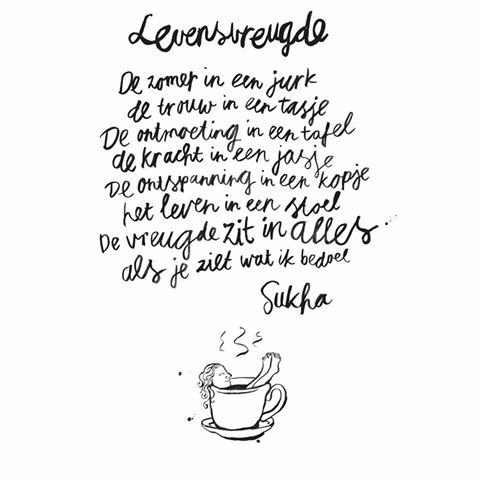 Levensvreugde
De zomer in een jurk
de trouw in een tasje
De ontmoeting in een tafel
de kracht in een jasje
De ontspanning in een kopje
het leven in een stoel
De vreugde zit in alles
als je ziet wat ik bedoel
Sukha